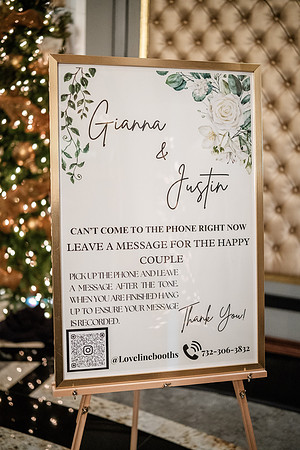 Gianna
&
Justin
CAN'T COME TO THE PHONE RIGHT NOW
LEAVE A MESSAGE FOR THE HAPPY
COUPLE
PICK UP THE PHONE AND LEAVE
A MESSAGE AFTER THE TONE.
WHEN YOU ARE FINISHED HANG
UP TO ENSURE YOUR MESSAGE
IS RECORDED.
Thank You!
@Lovelinebooths
732-306-3832